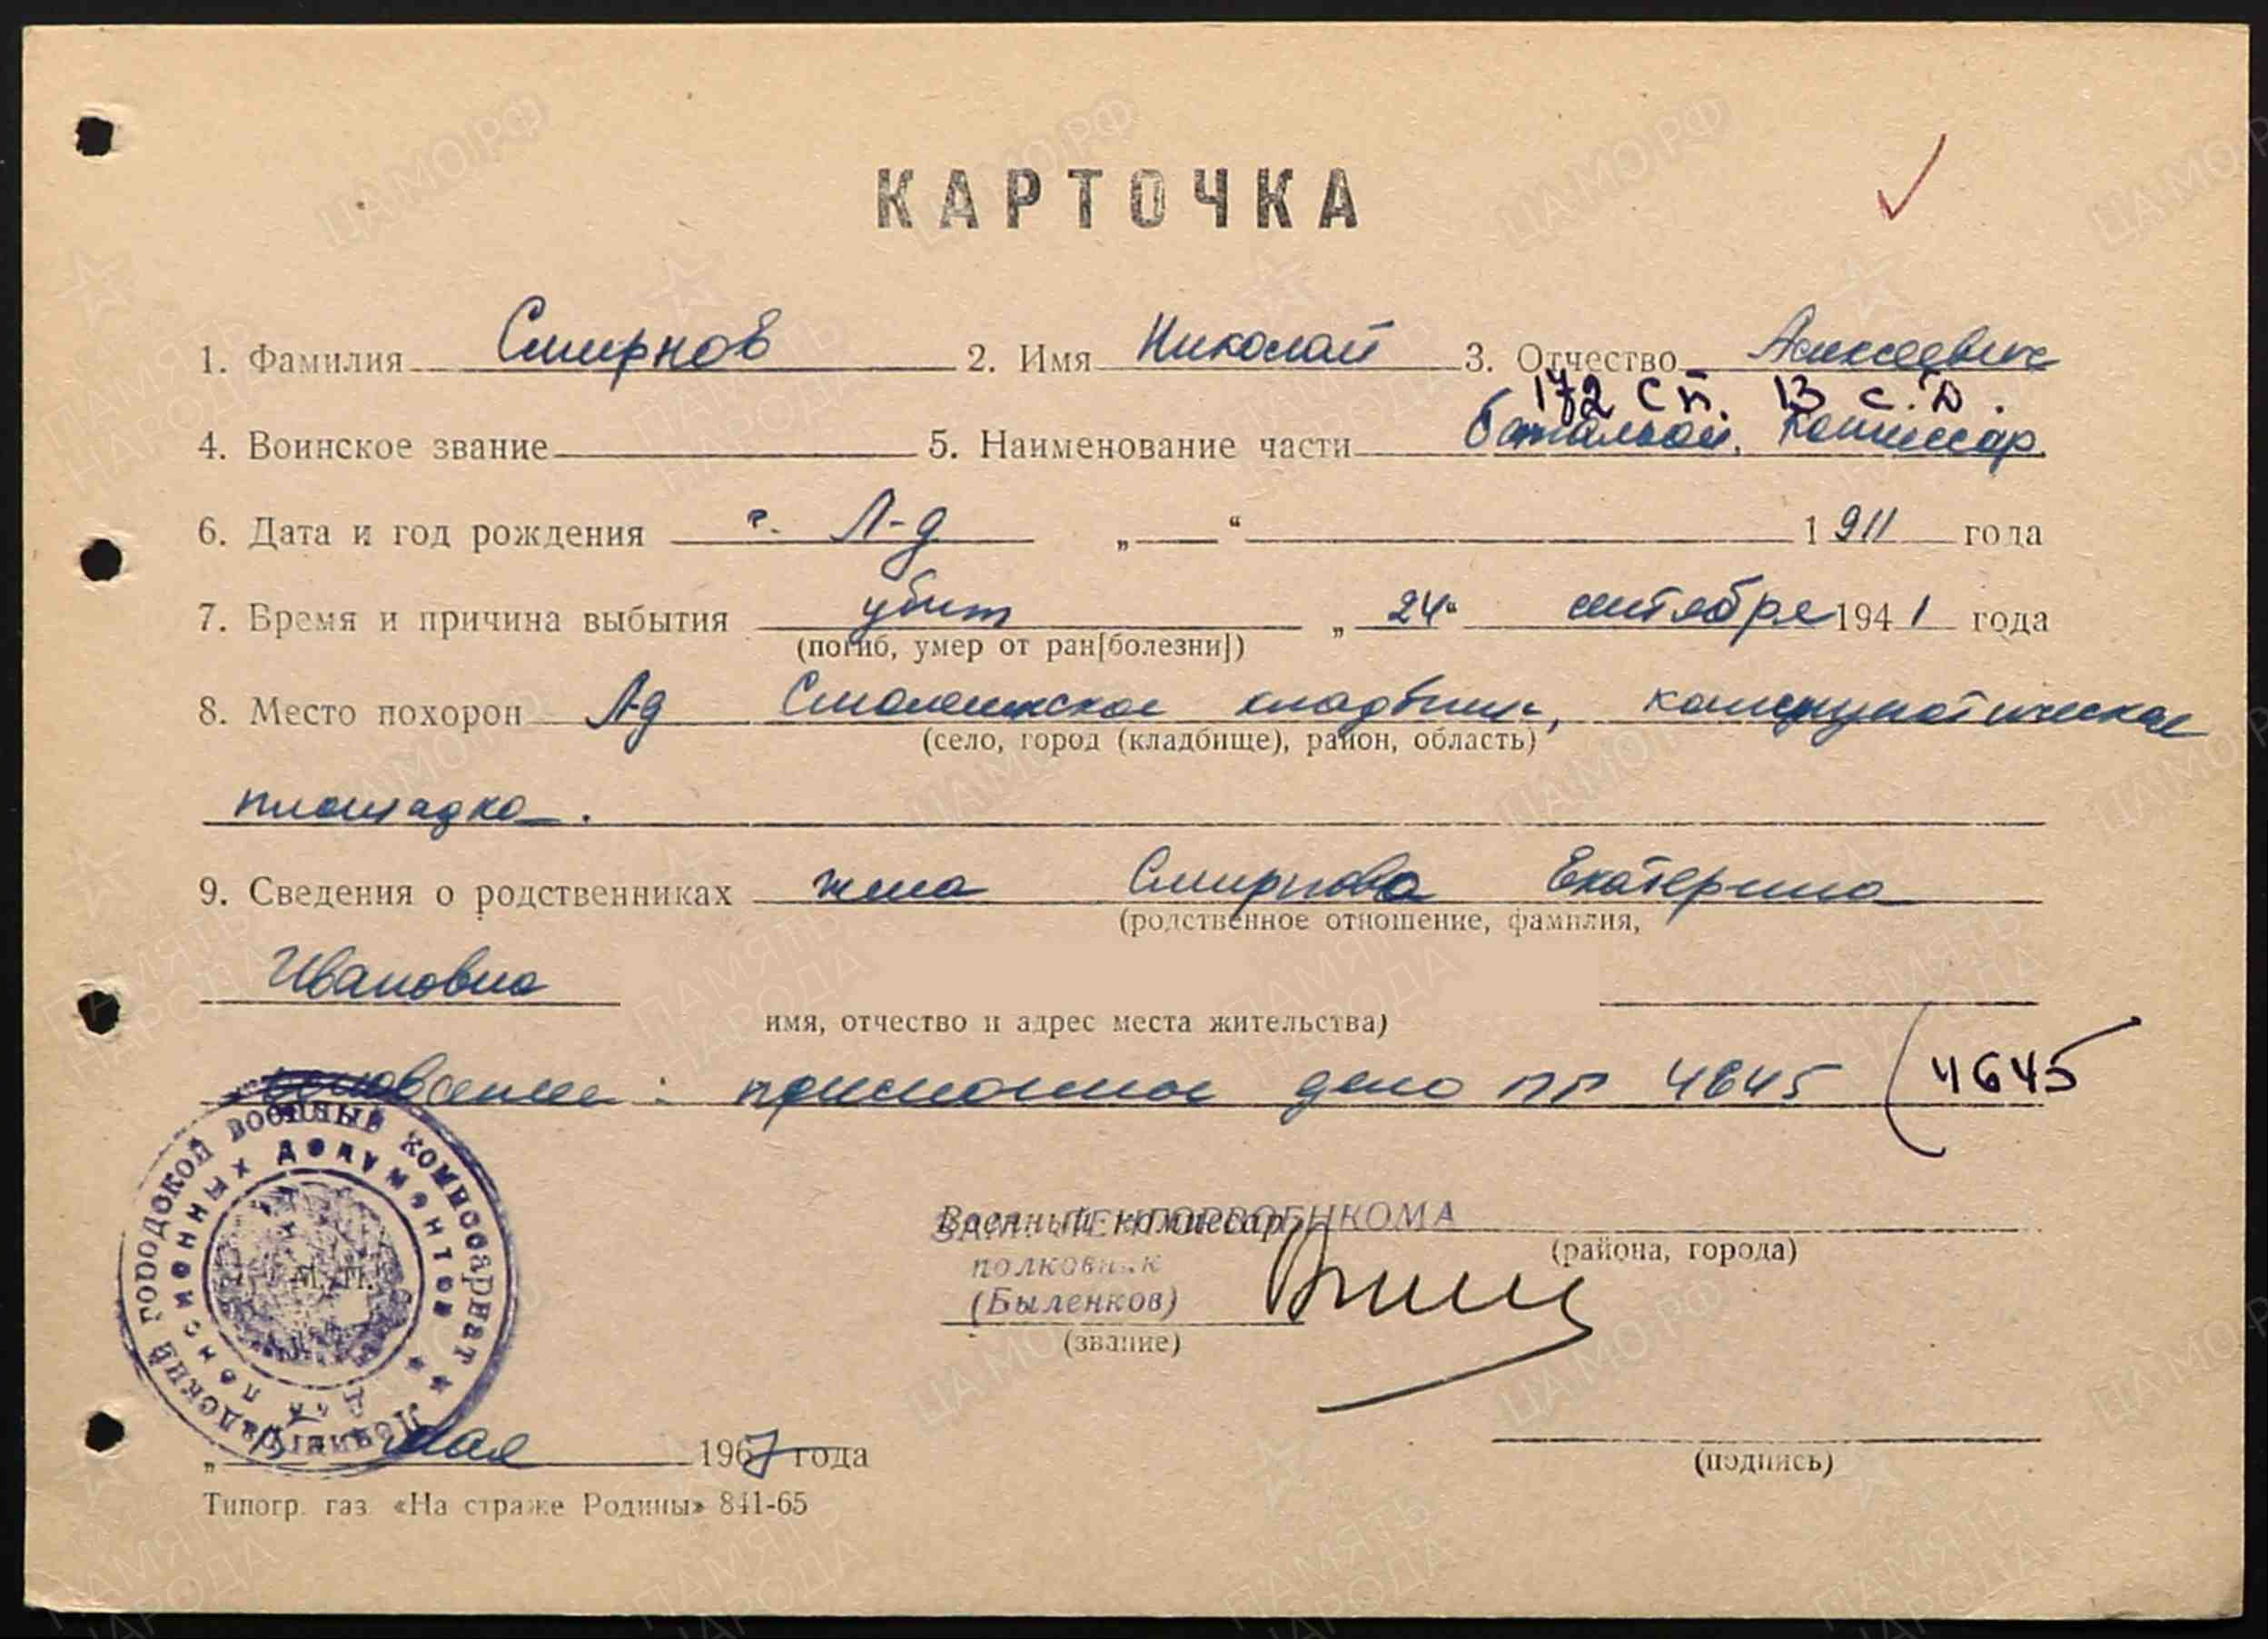 КАРТОЧКА
1. Фамилия Смирнов 2. Имя Николай 3. Отчество Алексеевич
172 сп. 13 с.д.
4. Воинское звание 5. Наименование части батальон. комиссар.
6. Дата и год рождения г. Л-д „ “ 1911 года
7. Время и причина выбытия убит „24“ сентября 1941 года
(погиб, умер от ран[болезни])
8. Место похорон Л-д Смоленское кладбище, коммунистическая
(село, город (кладбище), район, область)
площадка.
9. Сведения о родственниках жена Смирнова Екатерина
(родственное отношение, фамилия,
Ивановна
имя, отчество и адрес места жительства)
: дело пп 4645 (4645
ЛЕНИНГРАДСКИЙ ГОРОДСКОЙ ВОЕННЫЙ КОМИССАРИАТ
Для пенсионных документов
М. П.
Военный комиссар
ЗАМ. ЛЕНГОРВОЕНКОМА
(района, города)
полковник
(Быленков)
(звание)
„ мая 1967 года
(подпись)
Типогр. газ. «На страже Родины» 841-65
ЦАМО.РФ
ПАМЯТЬ НАРОДА